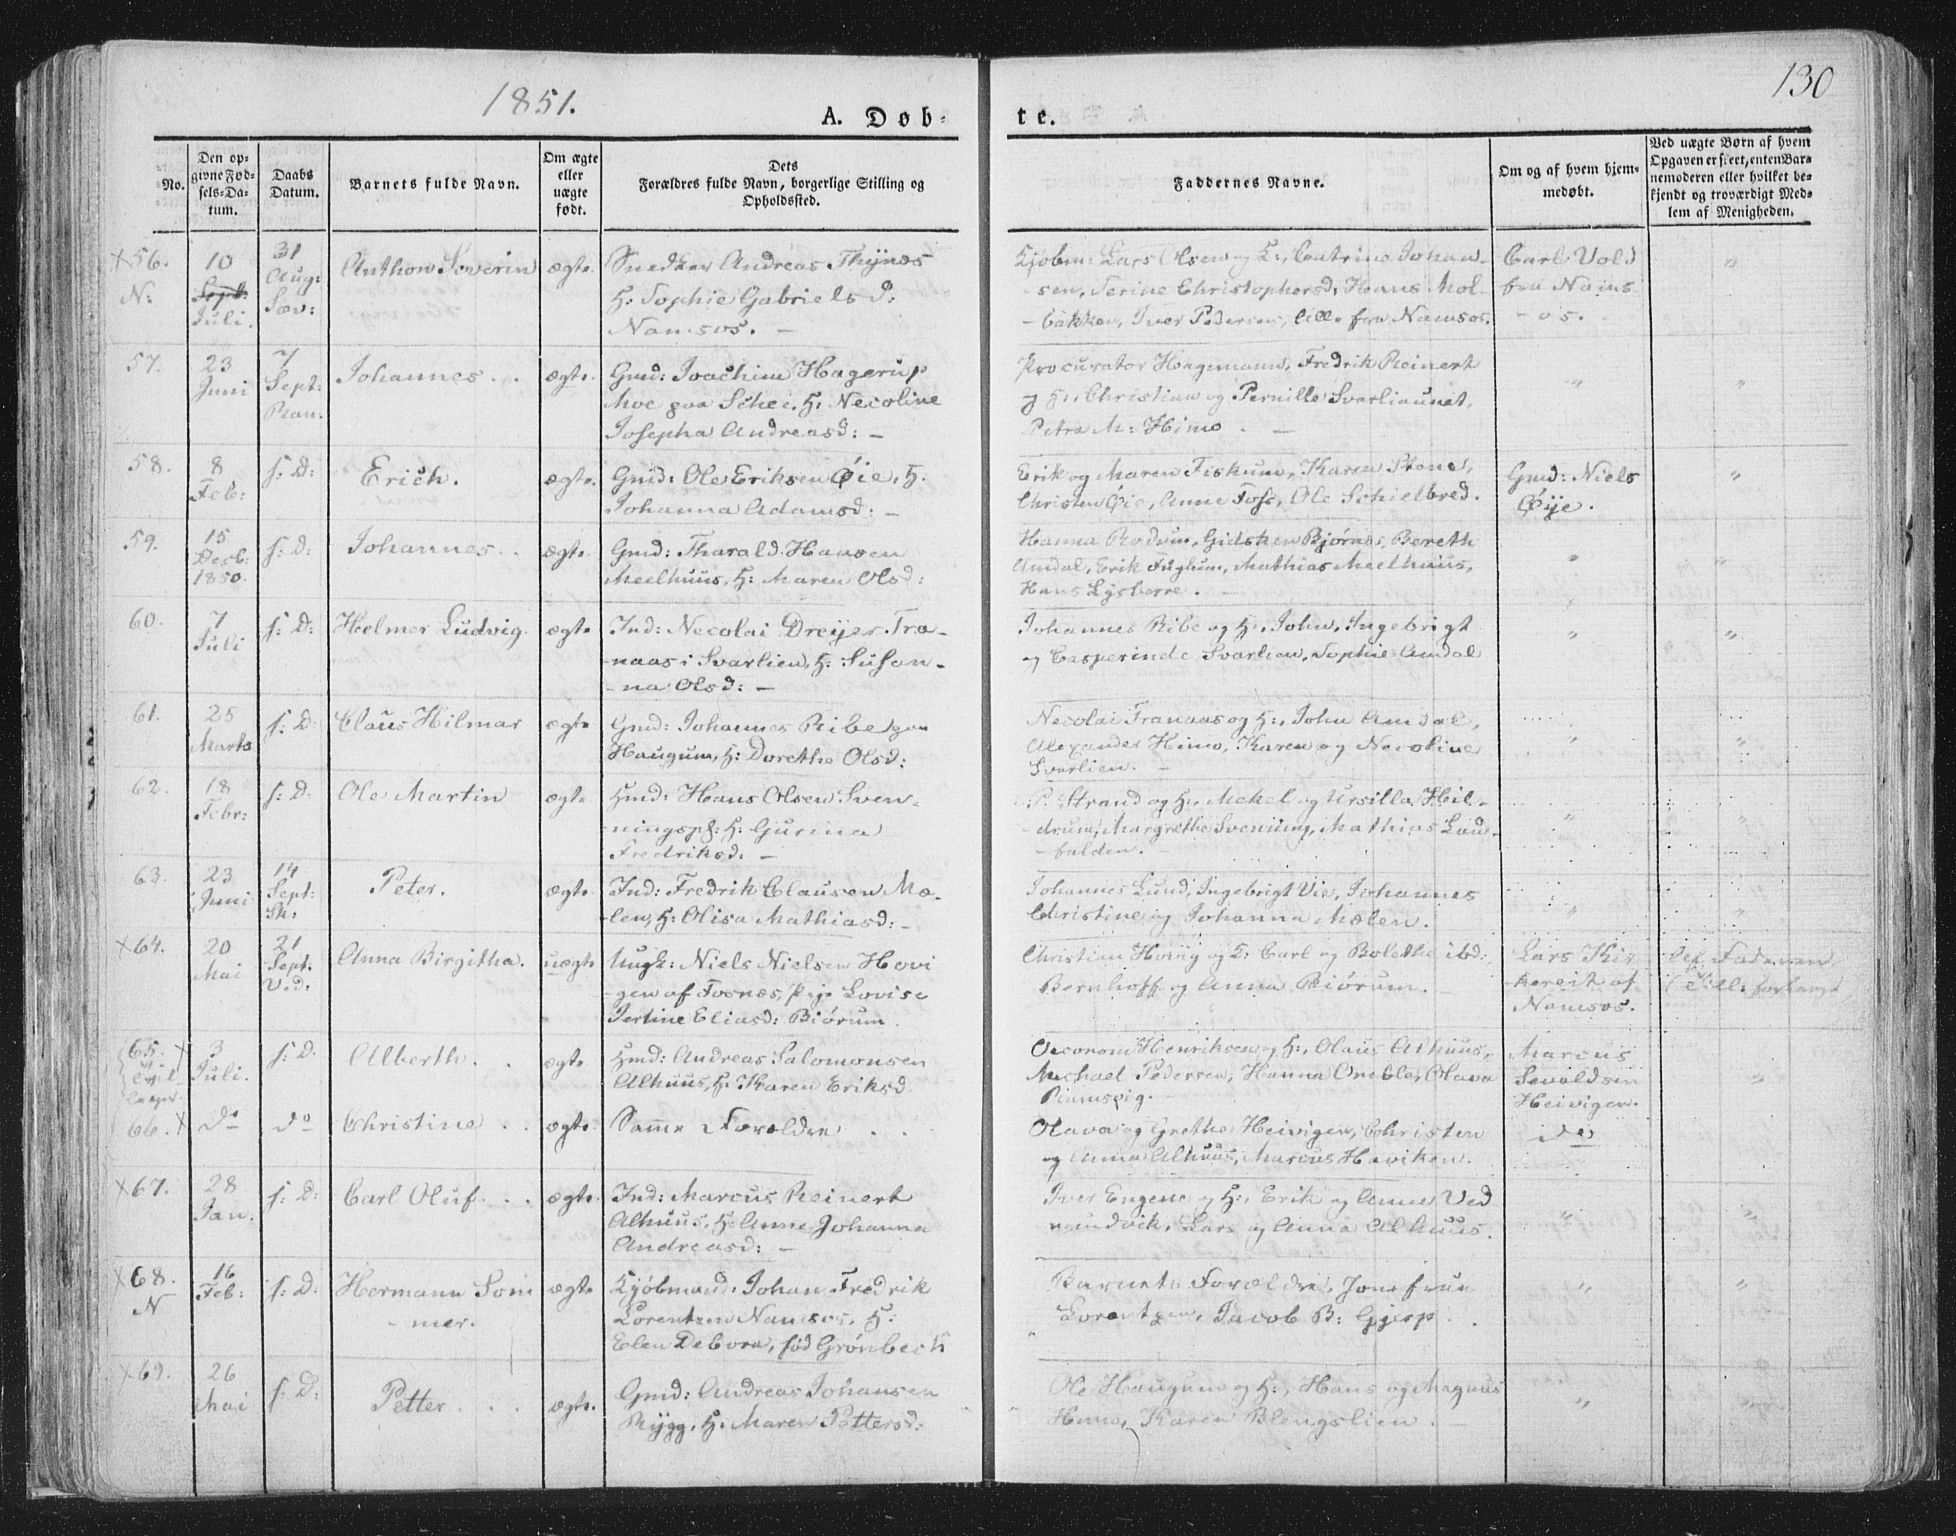 1851.
A. Døb-
te.
130
No.
Den op-
givne Fød-
sels-Da-
tum.
Daabs
Datum.
Barnets fulde Navn.
Om ægte
eller
uægte
født.
Dets
Forældres fulde Navn, borgerlige Stilling og
Opholdssted.
Faddernes Navne.
Om og af hvem hjem-
medøbt.
Ved uægte Børn af hvem
Opgaven er skeet, enten Bar-
nemoderen eller hvilket be-
kjendt og troværdigt Med-
lem af Menigheden.
×56.
N:
10
Sept:
Juli.
31
Aug:
Sæv:
Anthon Severin
ægte
Snedker Andreas Thynæs
H: Sophie Gabrielsd:
Namsos. –
Kjøbm: Lars Olsen og H:, Catrine Johan-
sen, Serine Christophersd, Hans Mol-
bakken, Iver Pedersen, alle fra Namsos.
Carl Vold
fra Nams
-os.
"
57.
23
Juni
7
Sept:
Ran.
Johannes . .
ægte.
Gmd: Joachim Hagerup
Moe paa Schei, H: Necoline
Josepha Andreasd: –
Procurator Hagemann, Fredrik Reinert
og H:, Christian og Pernille Svarliaunet,
Petra M: Himo . –
"
"
58.
8
Feb:
s: D:
Erich.
ægte.
Gmd: Ole Eriksen Øie, H:
Johanna Adamsd: –
Erik og Maren Fiskum, Karen Stene,
Christen Øie, Anne Foss, Ole Schielbred.
Gmd: Niels
Øije.
"
59.
15
Decb:
1850.
s: D:
Johannes. .
ægte.
Gmd: Tharald Hansen
Meelhuus, H: Maren Olsd:
Hanna Rodum, Gidsken Bjørnes, Bereth
Amdal, Erik Fuglum, Mathias Meelhuus,
Hans Lysberre. –
"
"
60.
7
Juli
s: D:
Helmer Ludvig.
ægte.
Ind: Necolai Dreyer Tra-
naas i Svarlien, H: Susan-
-na Olsd: –
Johannes Ribe og H:, John, Ingebrigt
og Casperinde Svarlien, Sophie Amdal
"
"
61.
25
Marts
s: D:
Claus Hilmar
ægte
Gmd: Johannes Ribe paa
Haugum, H: Dorethe Olsd:
Necolai Tranaas og H:, John Amdal,
Alexander Himo, Karen og Necoline
Svarlien. –
"
"
62.
18
Febr:
s: D:
Ole Martin
ægte
Hmd: Hans Olsen Sven-
ningspl: H: Gurina
Fredriksd: –
P: Strand og H:, Mekel og Ursilla Hil-
drum, Margrethe Svenning, Mathias Lau-
-falden.
"
"
63.
23
Juni
14
Sept:
Sk:
Peter.
ægte.
Ind: Fredrik Clausen Mæ-
len, H: Olisa Mathiasd: –
Johannes Lund, Ingebrigt Vie, Johannes
Christine og Johanna Mælen.
"
"
×64.
20
Mai
21
Sept.
Ved:
Anna Birgitha.
uægte
Ungk: Niels Nielsen Hovi
gen af Fosnæs, Pige Lovise
Jertine Eliasd: Biørum
Christian Hovig og H: Carl og Bolethe ibd:
Bernhoff og Anna Biørum.
Lars Kir
kereit af
Namsos.
Af Faderen
65. ×
3
Juli.
s: D.
Alberth. .
ægte.
Hmd: Andreas Salomonsen
Alhuus, H: Karen Eriksd
Oeconom Henriksen og H:, Olaus Alhuus,
Michael Pedersen, Hanna Oneble, Olava
Marcus
Sevaldsen
Heivigen.
"
66. ×
do
do
Christine . .
ægte.
Samme Forældre . .
Olava og Grethe Heivigen, Christen
og Anna Alhuus, Marcus Heviken.
do
×67.
28
Jan.
s: D:
Carl Oluf. . .
ægte.
Ind: Marcus Reinert
Alhuus, H: Anne Johanna
Andreasd: –
Iver Engene og H:, Erik og Anne Ved
Lars og Anna Alhuus.
"
"
×68.
N
16
Feb:
s: D:
Hermann Som
- mer.
ægte
Kjøbmand: Johan Fredrik
Lorentzen Namsos, H:
Elen Debora, fød Grønbech
Barnets Forældre, Jomfrue
Lorentzen, Jacob B: Gjerp.
"
"
×69.
26
Mai
s: D:
Petter . . .
ægte.
Gmd: Andreas Johansen
Rygg, H: Maren Pettersd:
Ole Haugum og H:, Hans og Magnus
Himo, Karen Blengslien.
"
"